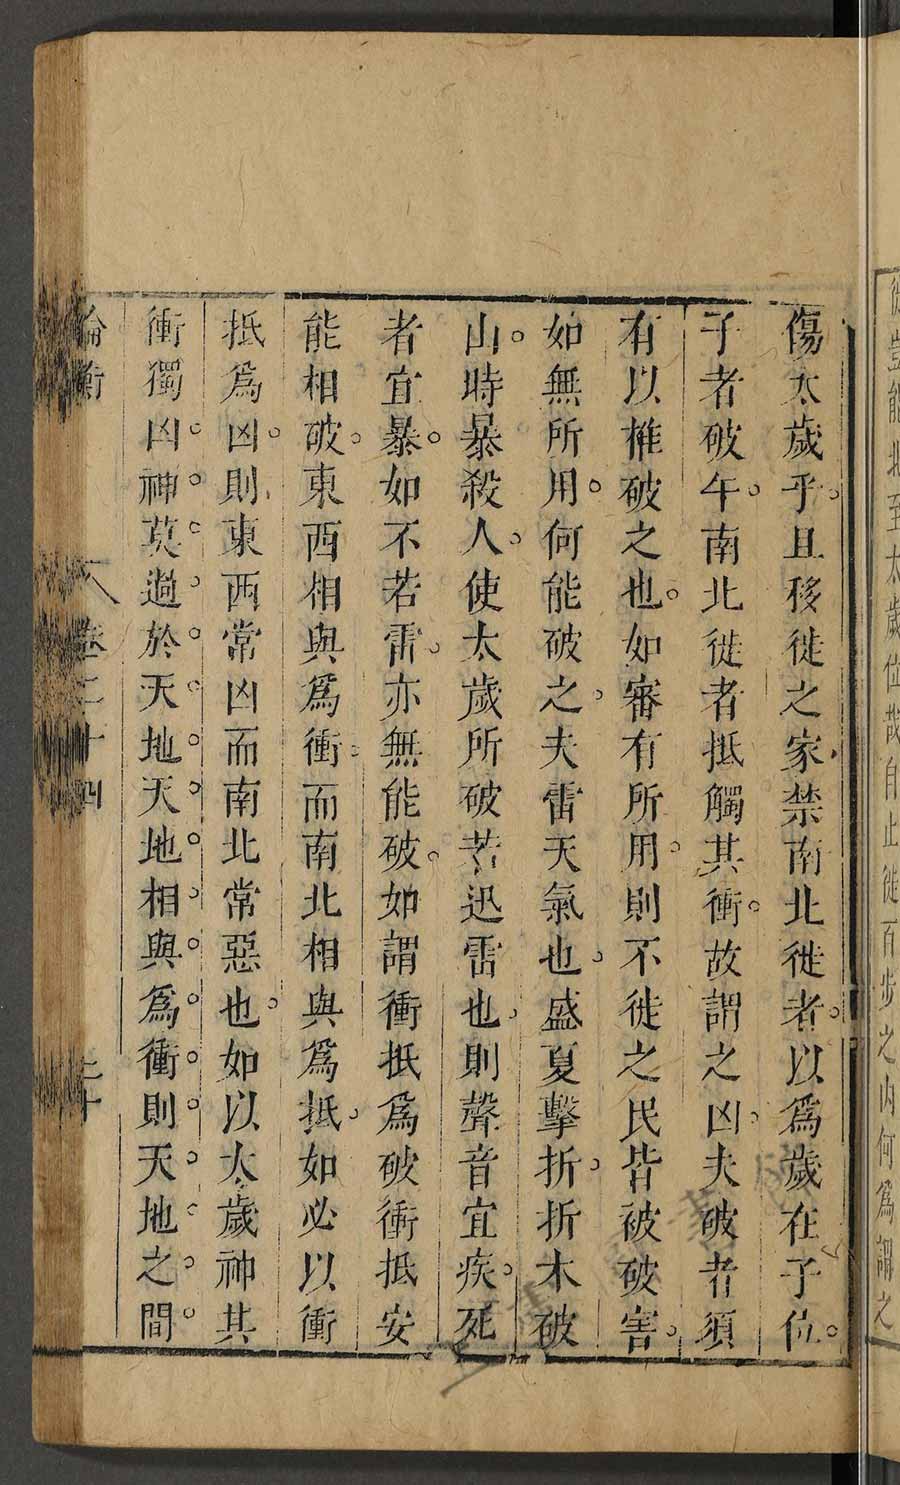 徙豈能北至太歲位哉自止徙百步之內何爲謂之
傷太歲乎。且移徙之家禁南北徙者。以爲歲在子位。
子者破午。南北徙者抵觸其衝。故謂之凶。夫破者須
有以椎破之也。如審有所用。則不徙之民皆被破害。
如無所用。何能破之。夫雷天氣也。盛夏擊折。折木破
山。時暴殺人。使太歲所破若迅雷也。則聲音宜疾。死
者宜暴。如不若雷。亦無能破。如謂衝抵爲破衝抵安
能相破。東西相與爲衝。而南北相與爲抵。如必以衝
抵爲凶。則東西常凶而南北常惡也。如以太歲神其
衝獨凶。神莫過於天地。天地相與爲衝。則天地之間。
論衡
卷二十四
二十